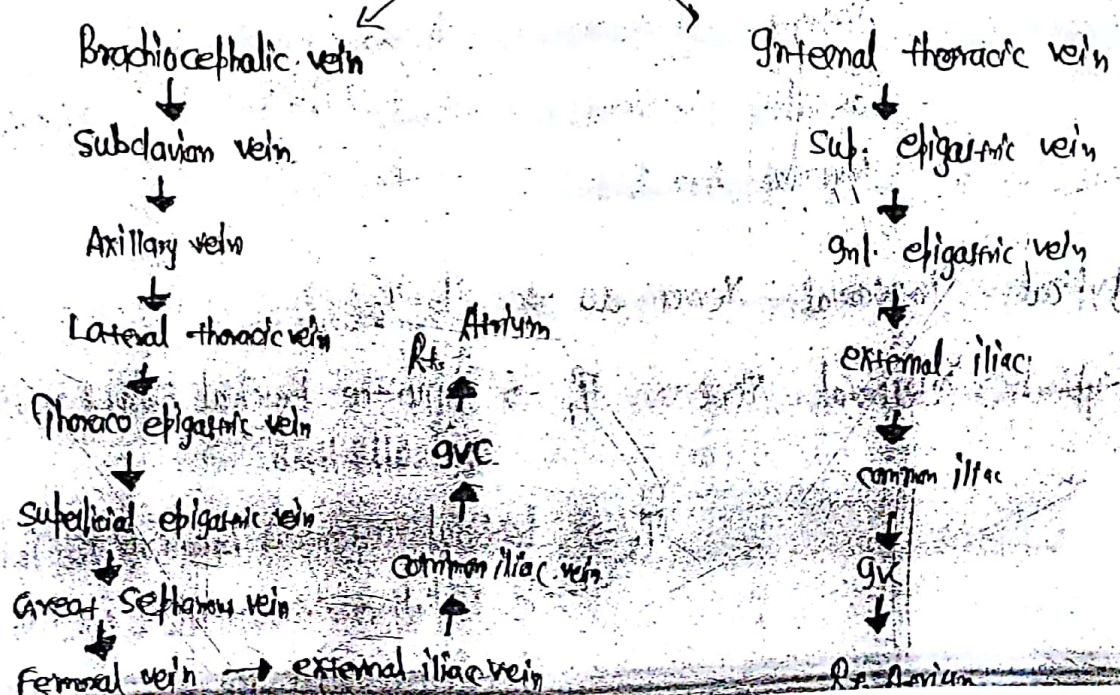 Brachiocephalic vein
Subclavian vein
Axillary vein
Lateral thoracic vein
Thoraco epigastric vein
Superficial epigastric vein
Great Saphenous vein
Femoral vein → external iliac vein
common iliac vein
IVC
Rt. Atrium
Internal thoracic vein
Sup. epigastric vein
Inf. epigastric vein
external iliac
common iliac
IVC
Rt. Atrium